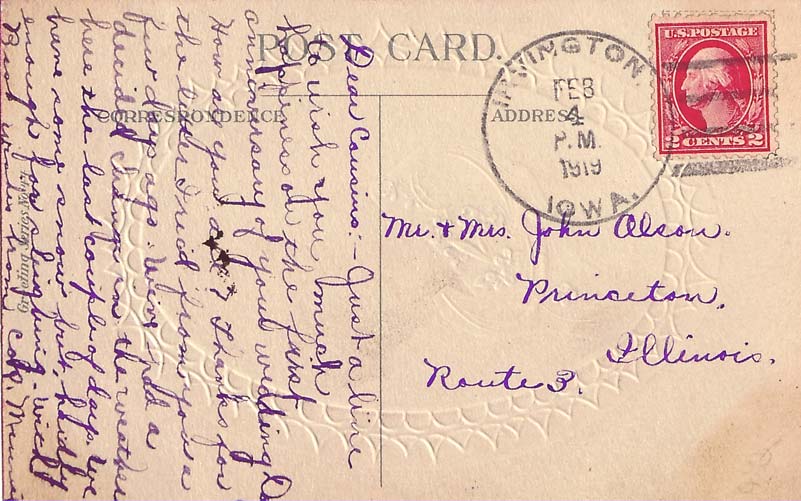 POST CARD.
CORRESPONDENCE
ADDRESS
IRVINGTON,
FEB
4
P.M.
1919
IOWA.
U.S. POSTAGE
2 CENTS 2
Mr. & Mrs. John Olson.
Princeton,
Illinois.
Route 3.
Dear Cousins:- Just a line
to wish you much
happiness on the first
anniversary of your wedding
How are you all? Thanks for
the card I rec'd from you a
few days ago. We've had a
decided change in the weather
here the last couple of days. We
have some snow but hardly
enough for sleighing.
Best wishes from
Greeting Series